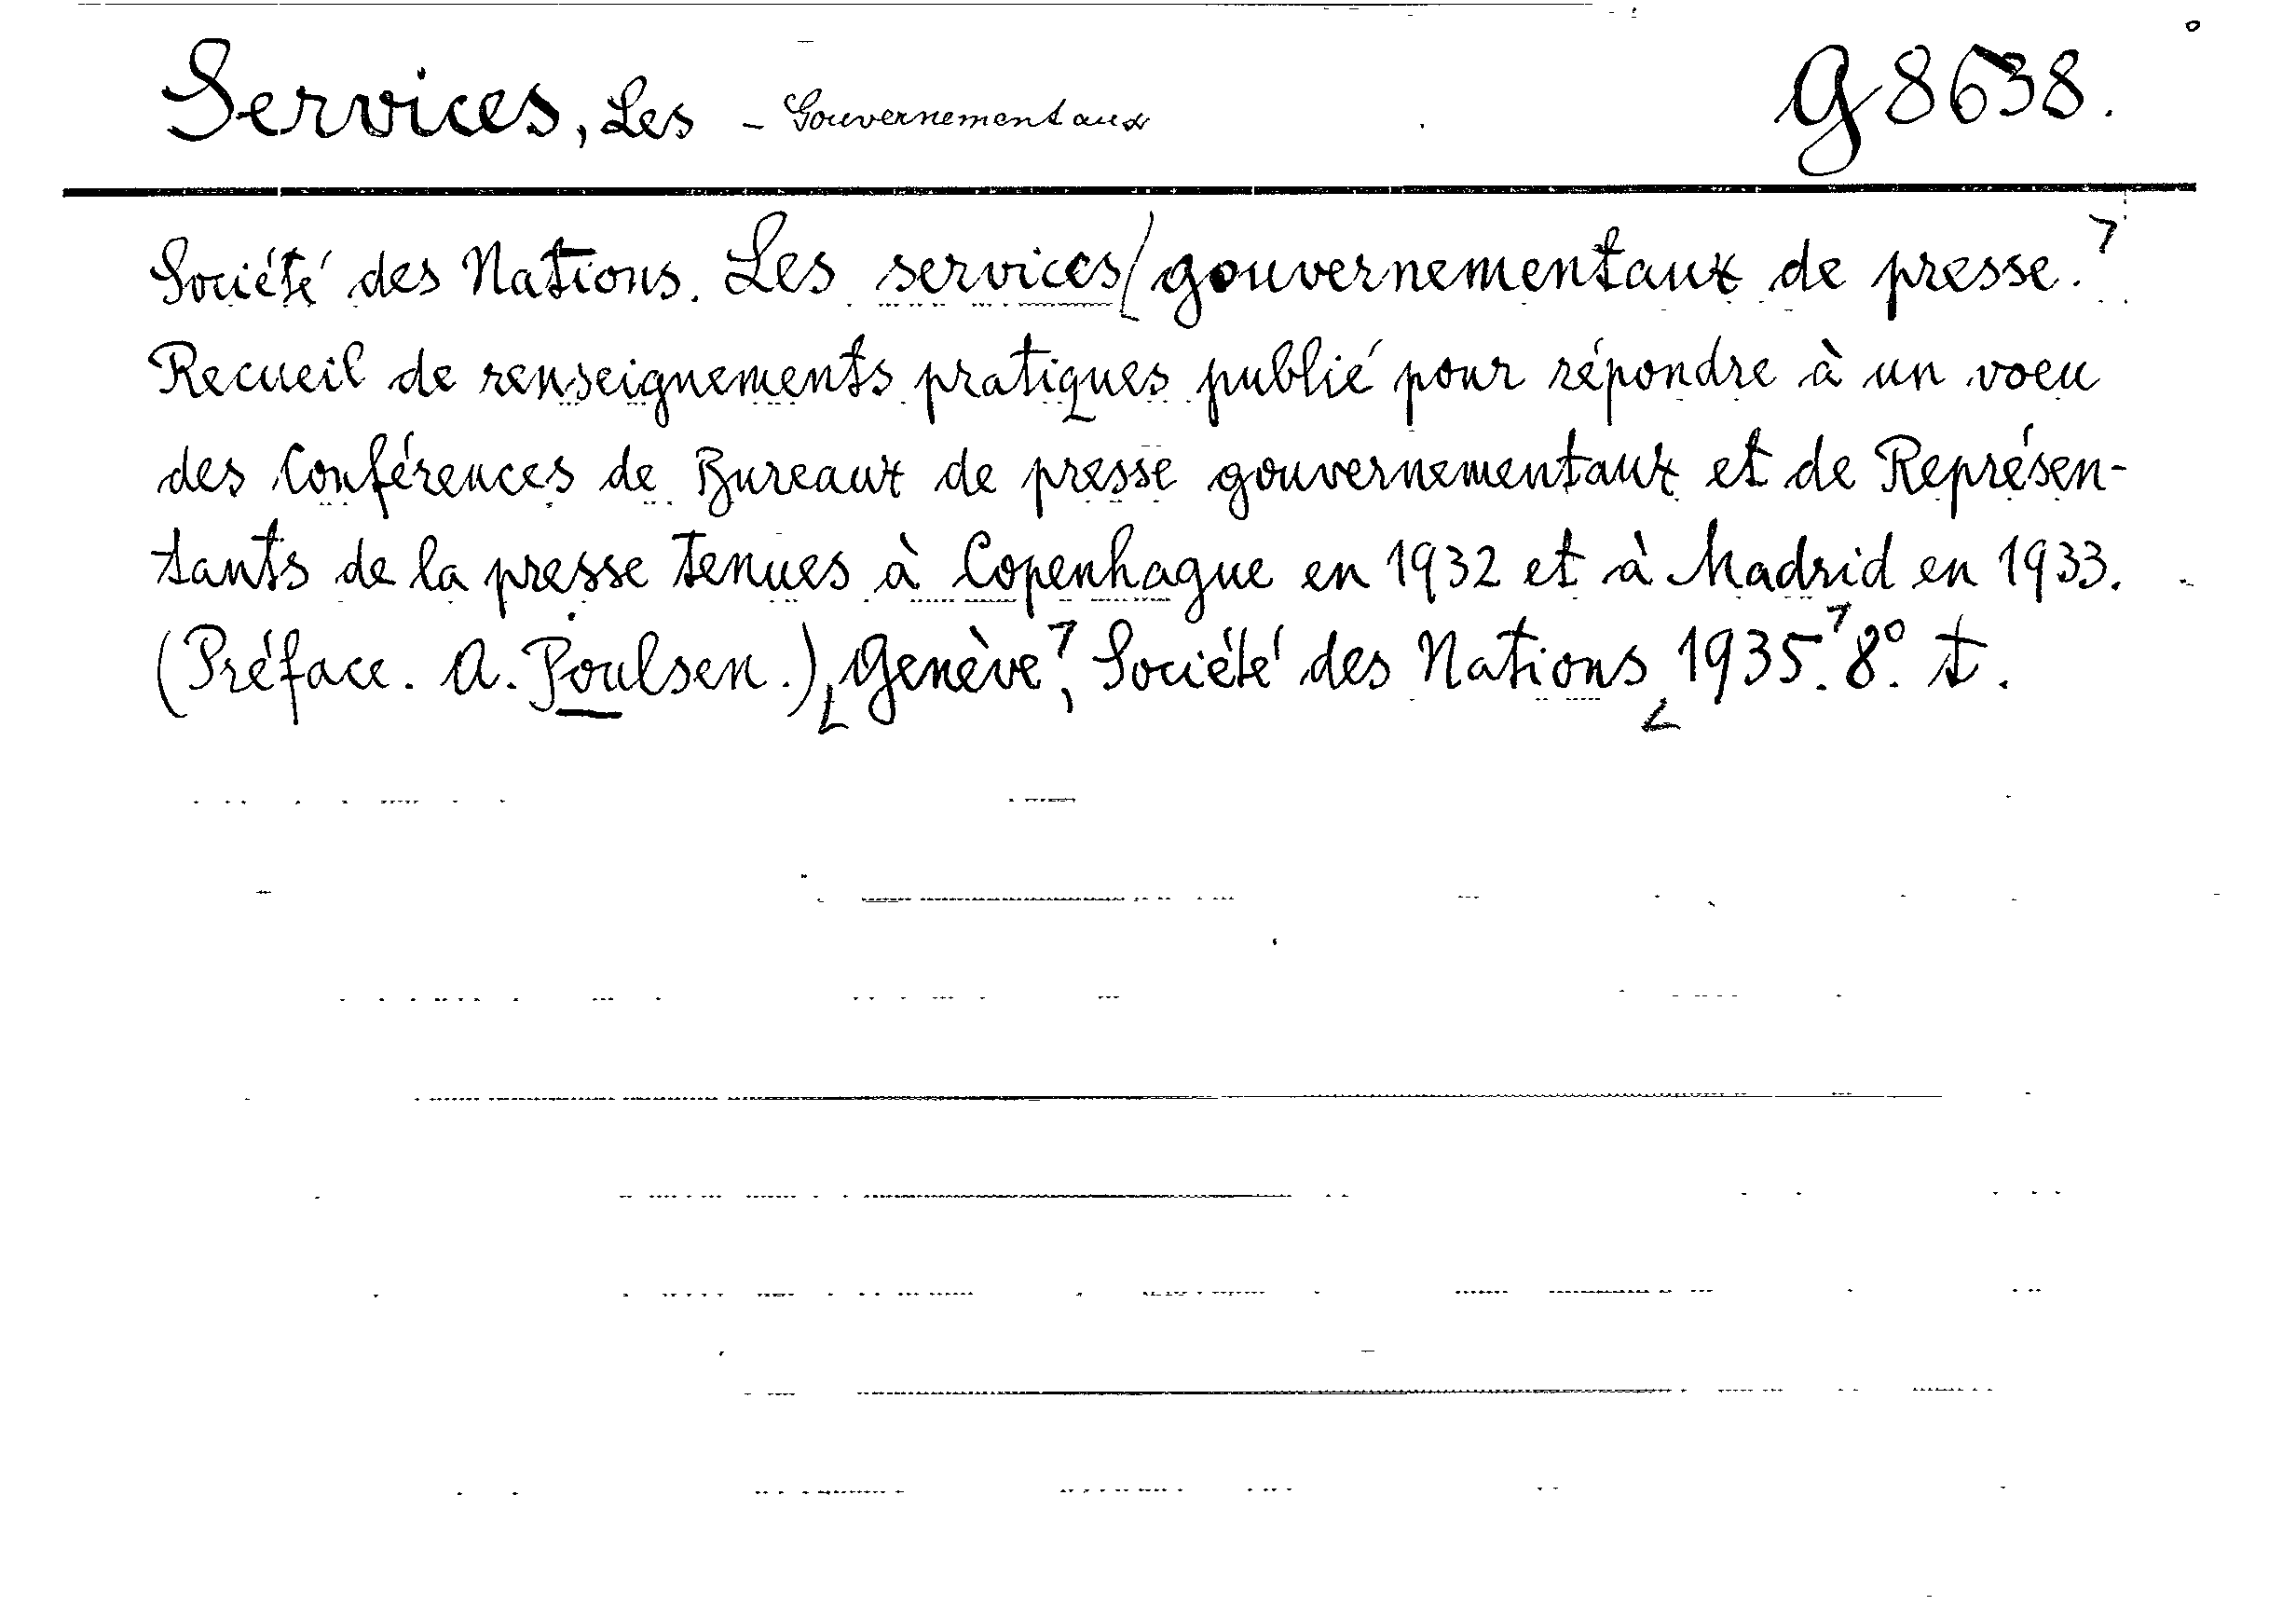 Services, Les - Gouvernementaux G 8638.
Société des Nations. Les services gouvernementaux de presse.
Recueil de renseignements pratiques publié pour répondre à un voeu
des Conférences de Bureaux de presse gouvernementaux et de Représen-
tants de la presse tenues à Copenhague en 1932 et à Madrid en 1933.
(Préface. A. Poulsen.) Genève, Société des Nations 1935. 8°. t.